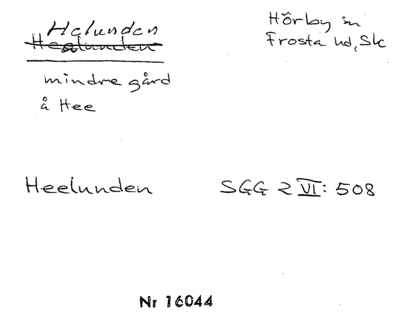 Helunden
Heelunden
Hörby sn
Frosta hd, Sk
mindre gård
å Hee
Heelunden
SGG 2 VI: 508
Nr 16044